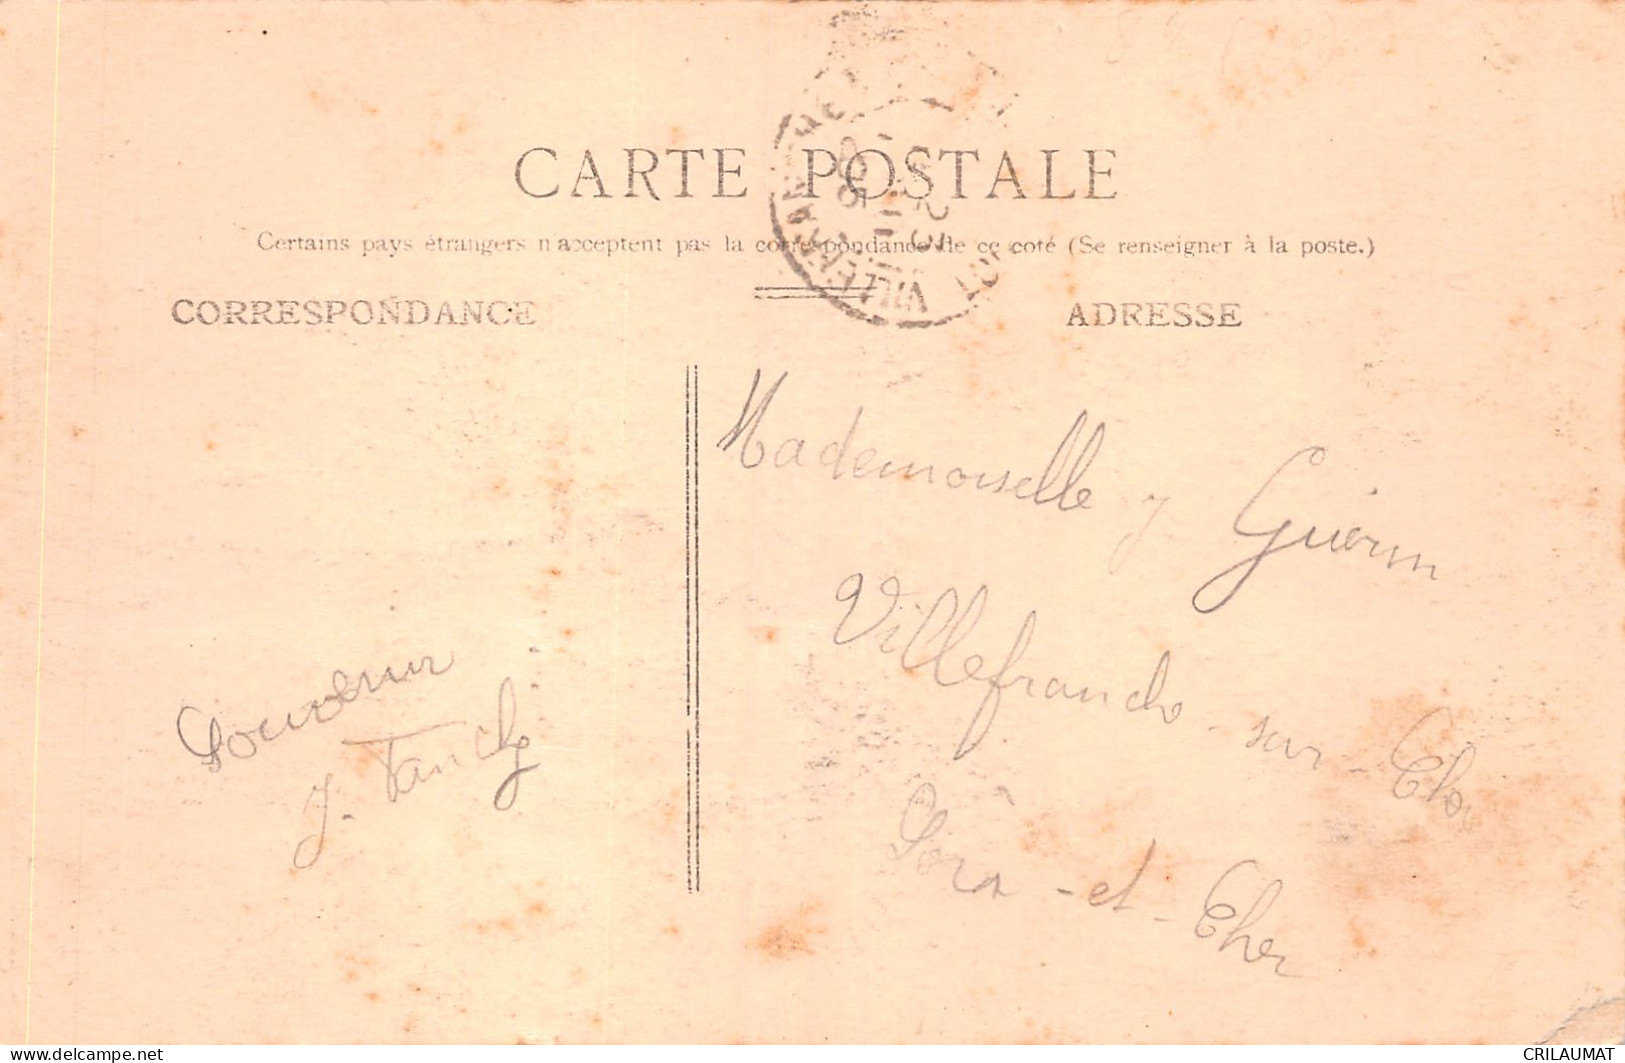 CARTE POSTALE
Certains pays étrangers n'acceptent pas la correspondance de ce coté (Se renseigner à la poste.)
CORRESPONDANCE
ADRESSE
Mademoiselle J Guérin
Villefranche-sur-Cher
Loir-et-Cher
Souvenir
J.
VILLEFRAN
Delcampe.net
CRILAUMAT